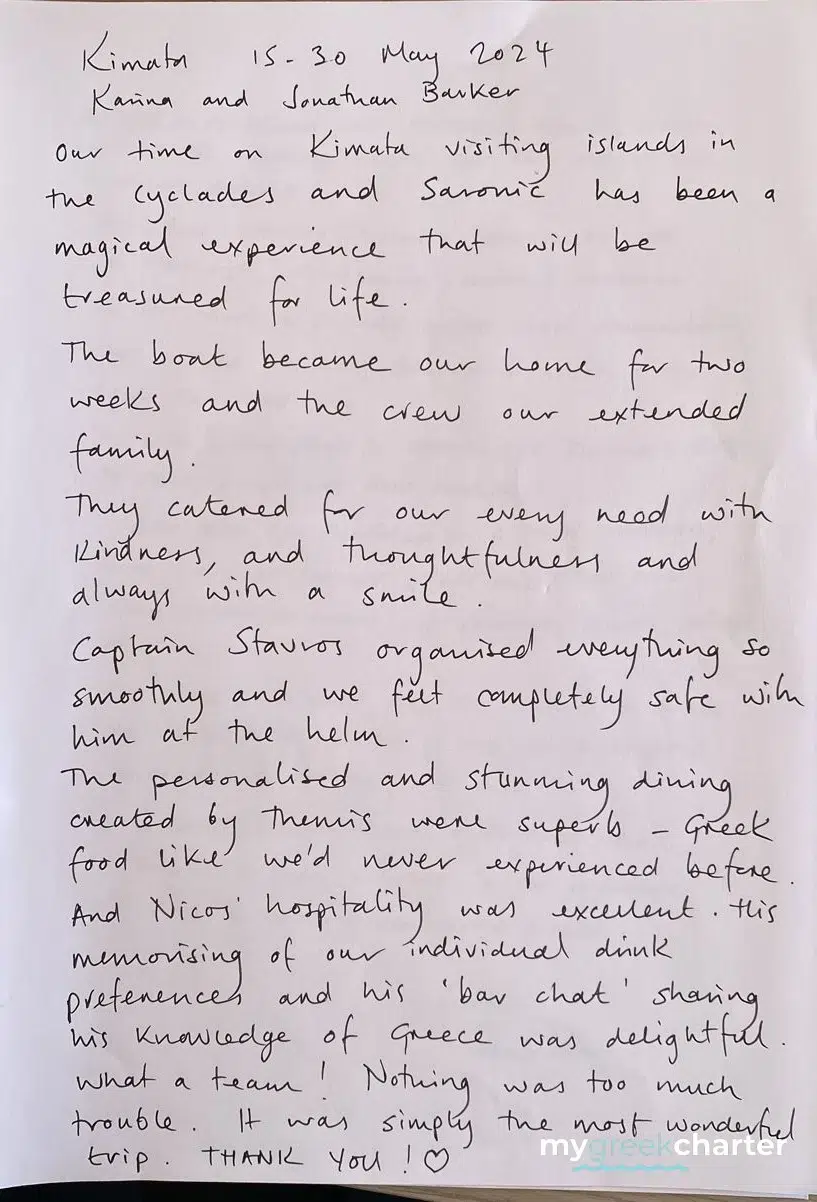 Kimata 15-30 May 2024
Karina and Jonathan Barker
Our time on Kimata visiting islands in
the Cyclades and Saronic has been a
magical experience that will be
treasured for life.
The boat became our home for two
weeks and the crew our extended
family.
They catered for our every need with
kindness, and thoughtfulness and
always with a smile.
Captain Stavros organised everything so
smoothly and we felt completely safe with
him at the helm.
The personalised and stunning dining
created by Themis were superb - Greek
food like we'd never experienced before.
And Nicos' hospitality was excellent. His
memorising of our individual drink
preferences and his 'bar chat' sharing
his knowledge of Greece was delightful.
What a team! Nothing was too much
trouble. It was simply the most wonderful
trip. THANK YOU! ♡
mygreekcharter